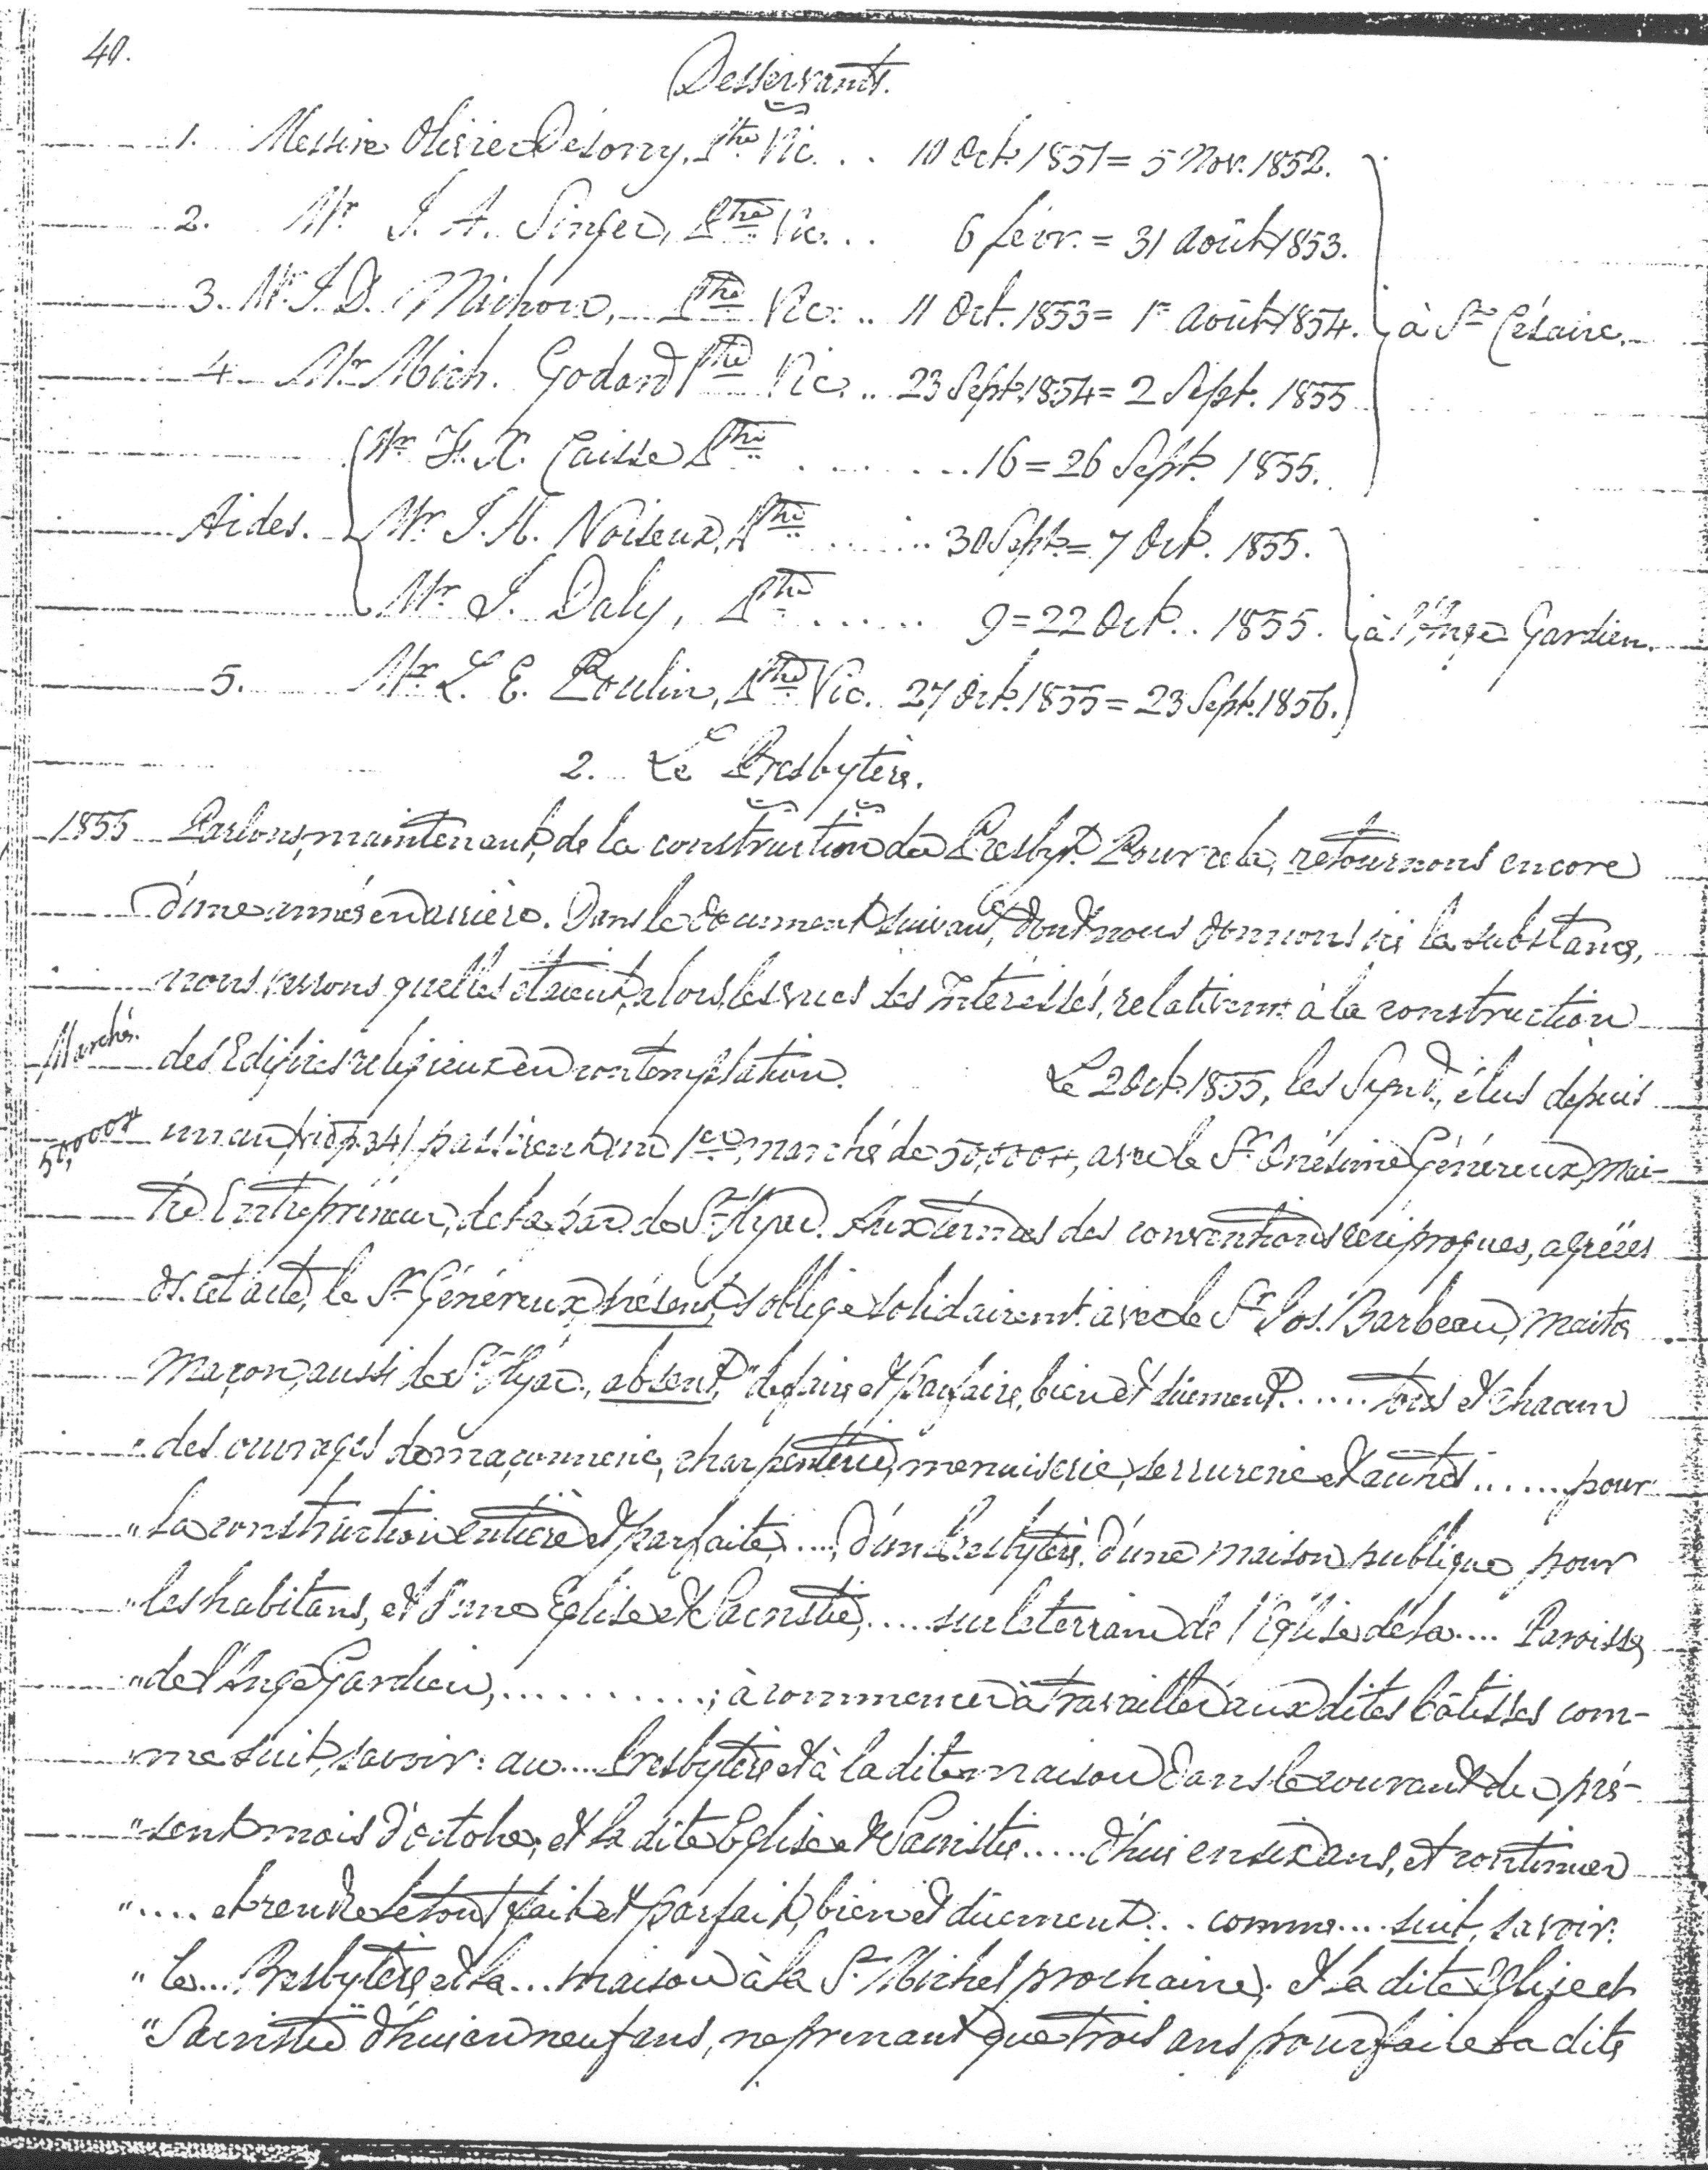 40.
Desservants.
1. Messire Olivier Désorcy, Ptre Vic. .. 10 Oct. 1851 = 5 Nov. 1852.
2. Mr J. A. Singer, Ptre Vic. .. 6 févr. = 31 Août 1853.
3. Mr J. D. Michon, Ptre Vic. .. 11 Oct. 1853 = 1er Août 1854. à St Césaire.
4. Mr Mich. Godard Ptre Vic. .. 23 Sept. 1854 = 2 Sept. 1855
Mr F. X. Caisse Ptre ........ 16 = 26 Sept. 1855.
Aides. Mr J. M. Noiseux, Ptre ....... 30 Sept. = 7 Oct. 1855.
Mr J. Daly, Ptre ...... 9 = 22 Oct. .. 1855. à l'Ange Gardien.
5. Mr L. E. Poulin, Ptre Vic. 27 Oct. 1855 = 23 Sept. 1856.
2. Le Presbytère.
1855 Parlons, maintenant, de la construction du Presbyt. Pour cela, retournons encore
d'une année en arrière. Dans le document suivant, dont nous donnons ici la substance,
nous verrons quelles étaient, alors, les vues des Intéressés, relativemt à la construction
Marché. des Edifices religieux en contemplation. Le 2 Oct. 1855, les Synd., élus depuis
50,000# un an (vid p. 34) passèrent un 1er marché de 50,000#, avec le Sr Onésime Généreux, maî-
tre Entrepreneur, de la par. de St Hyac. Aux termes des conventions réciproques, agréées
ds. cet acte, le Sr Généreux, présent, s'oblige solidairemt avec le Sr Jos. Barbeau, maître
maçon, aussi de St Hyac., absent, "de faire et parfaire, bien et dûement ...... tous et chacun
"des ouvrages de maçonnerie, charpenterie, menuiserie, serrurerie et autres ....... pour
"la construction entière et parfaite, ...., d'un Presbytère, d'une maison publique pour
"les habitans, et d'une Eglise et Sacristie, ..... sur le terrain de l'Eglise de la .... Paroisse
"de l'Ange Gardien, ..........; à commencer à travailler aux dites bâtisses com-
"me suit, savoir: au .... Presbytère et à la dite maison dans le courant du pré-
"sent mois d'octobre, et la dite Eglise et Sacristie ..... d'hui en six ans, et continuer
".... et rendre le tout fait et parfait, bien et dûement ... comme .... suit, savoir:
"le ... Presbytère et la ... maison à la St Michel prochaine; et la dite Eglise et
"Sacristie d'hui en neuf ans, ne prenant que trois ans pour faire la dite